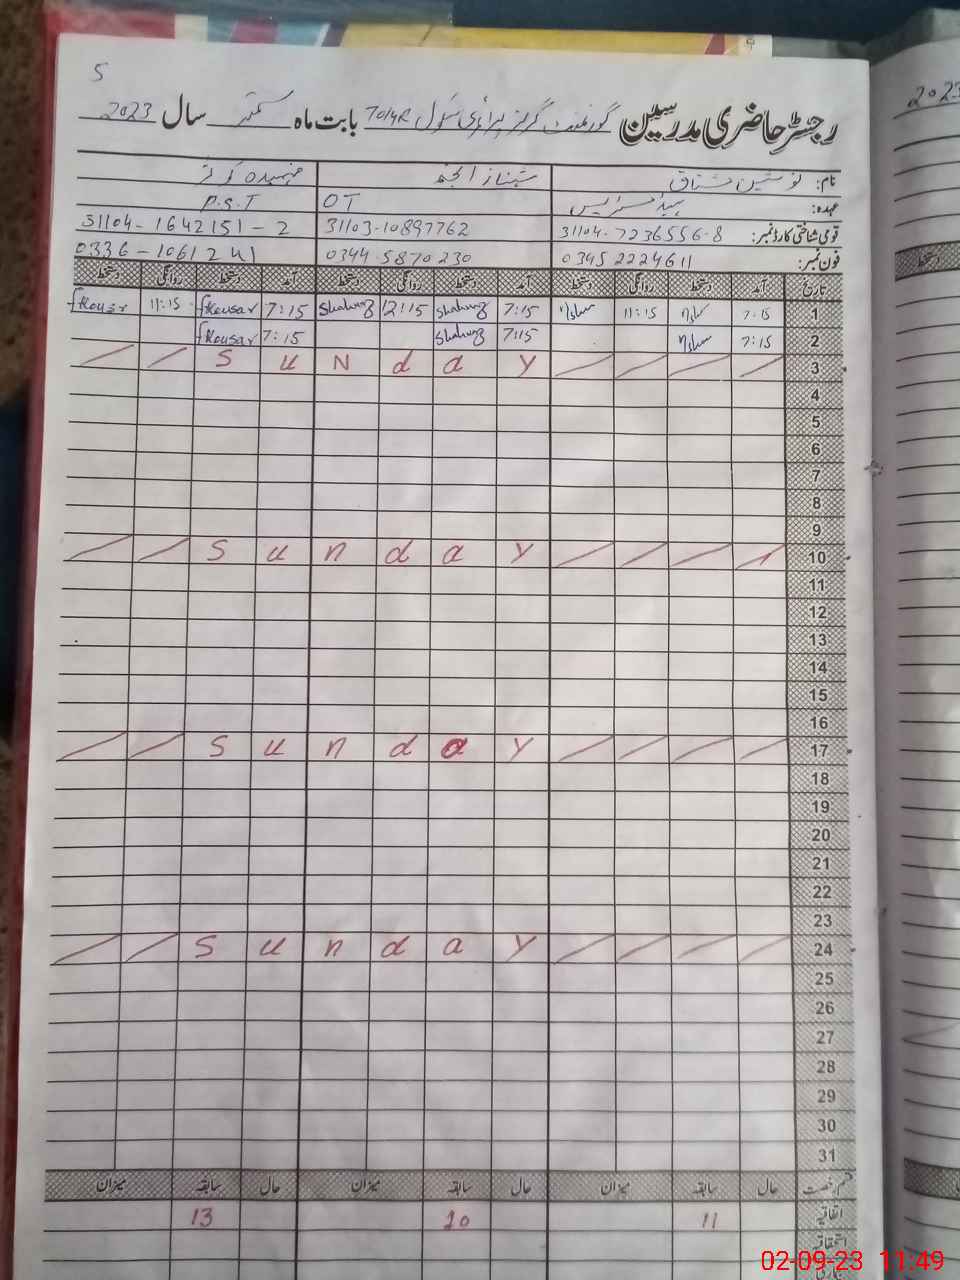 5
رجسٹر حاضری مدرسین گورنمنٹ گرلز پرائمری سکول 70/4R بابت ماہ ستمبر سال 2023
نام: نوشین مشتاق شہناز انجم فہمیدہ کوثر
عہدہ: ہیڈ مسٹریس OT P.S.T
قومی شناختی کارڈ نمبر: 31104-7236556-8 31103-10897762 31104-1642151-2
فون نمبر: 03452224611 0344-5870230 0336-1061241
تاریخ آمد دستخط روانگی دستخط آمد دستخط روانگی دستخط آمد دستخط روانگی دستخط
1 7:15 11:15 7:15 Shahnaz 12:15 Shahnaz 7:15 fkousar 11:15 fkousar
2 7:15 7:15 Shahnaz 7:15 fkousar
3 SuNday
4
5
6
7
8
9
10 Sunday
11
12
13
14
15
16
17 Sunday
18
19
20
21
22
23
24 Sunday
25
26
27
28
29
30
31
قسم رخصت حال سابقہ میزان حال سابقہ میزان حال سابقہ میزان
اتفاقیہ 11 10 13
استحقاقیہ
2023
دستخط
02-09-23 11:49